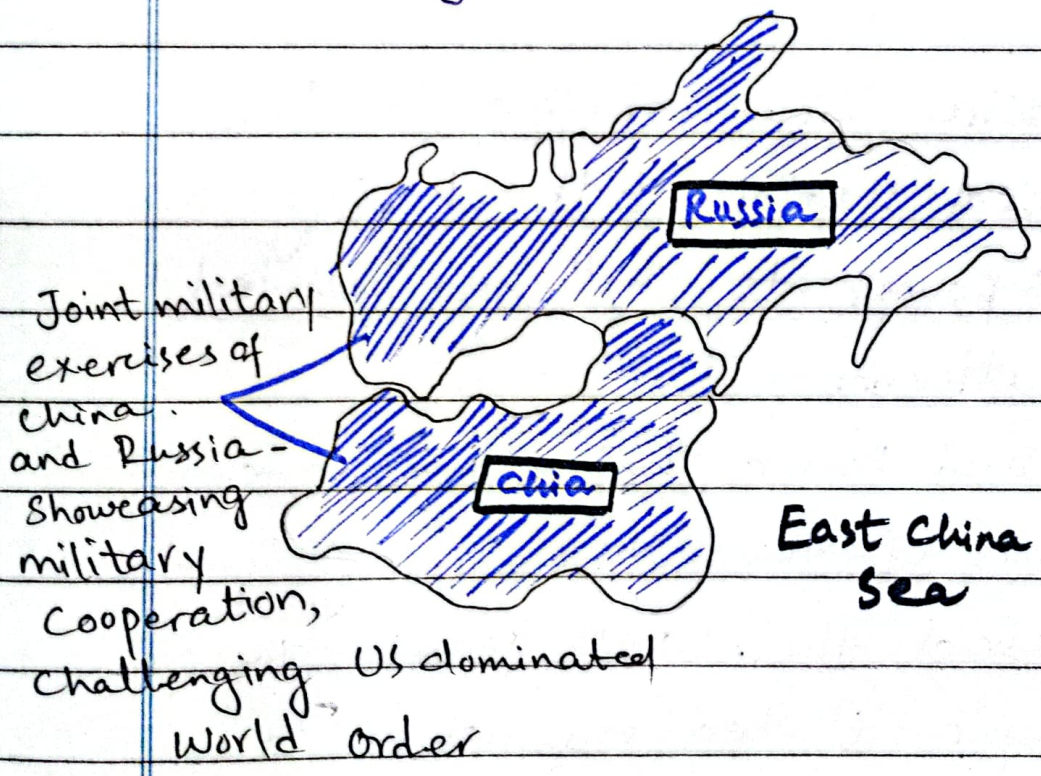 Russia
Joint military
exercises of
China.
and Russia -
Showcasing
military
Cooperation,
Challenging US dominated
World Order
Chia
East China
Sea